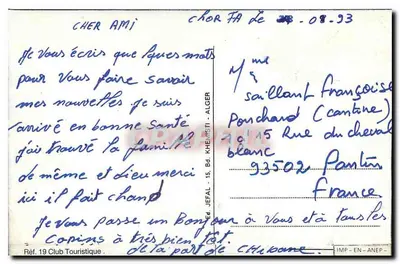 CHER AMI
Chorfa le 08.93
Je vous écris que lques mots
pour vous faire savoir
mes nouvelles je suis
arrivé en bonne santé
j'ai trouvé la famille
de même et dieu merci
ici il fait chaud
Je vous passe un bonjour à vous et à tous les
copins à très bien tôt.
de la part de CHibane
Mme
Saillant Françoise
Ponchard (cantine)
15 Rue du cheval
blanc
93502 Pantin
France
Ed. JEFAL - 15, Bd. - ALGER
Réf. 19 Club Touristique
IMP - EN - ANEP -